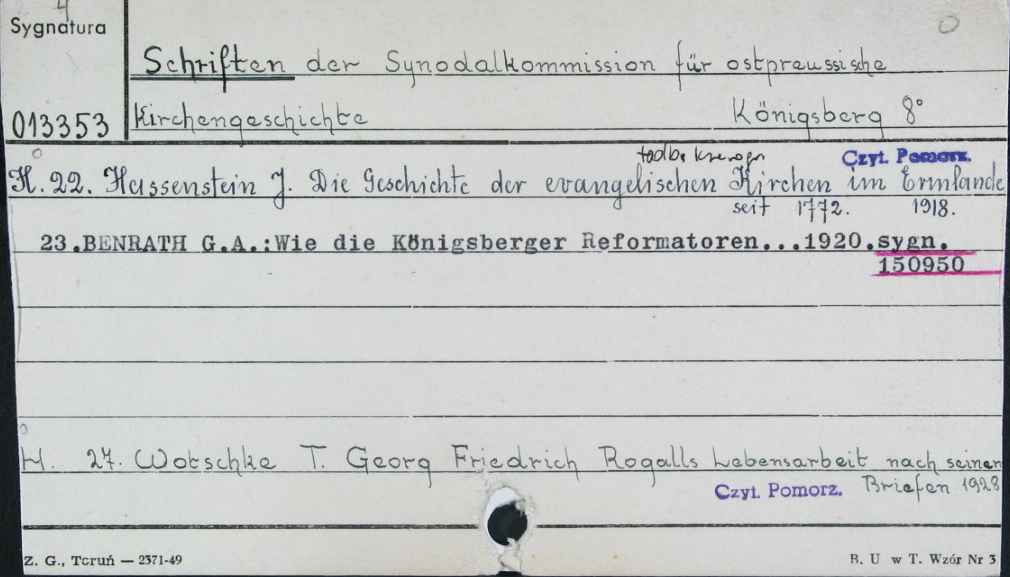 4
Sygnatura
Schriften der Synodalkommission für ostpreussische
013353 Kirchengeschichte Königsberg 8°
Czyt. Pomorz.
H. 22. Hassenstein J. Die Geschichte der evangelischen Kirchen im Ermlande
seit 1772. 1918.
23.BENRATH G.A.:Wie die Königsberger Reformatoren...1920.sygn.
150950
H. 27. Wotschke T. Georg Friedrich Rogalls Lebensarbeit nach seinen
Czyt. Pomorz. Briefen 1928
Z. G., Toruń — 2371-49 B. U w T. Wzór Nr 3